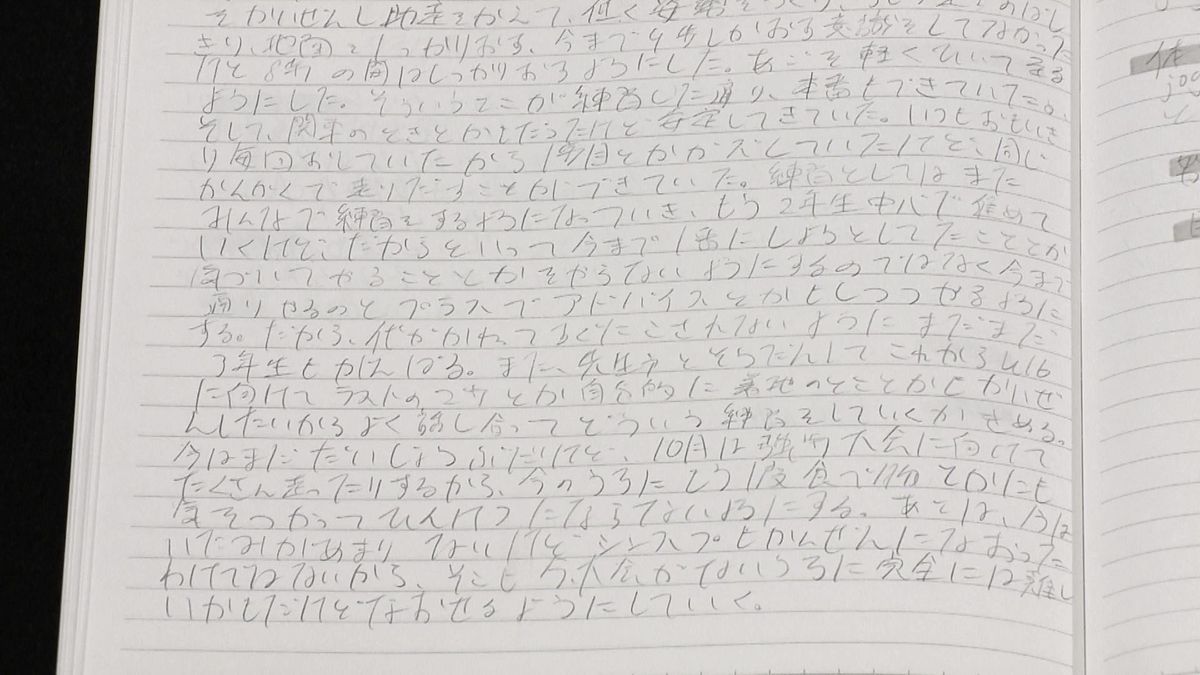 をかいぜんし助走をかえて、低く
きり、地面をしっかりおす、今まで4歩しかおす意識をしてなかった
けど8歩の間はしっかりおるようにした。あごを軽くひいて走る
ようにした。そういうとこが練習した通り、本番もできていた。
そして、関東のときとかもだったけど安定してきていた。いつもおもいき
り毎回おしていたから1歩目とかがズしていたけど、同じ
かんかくで走りだすことができていた。練習としてはまた
みんなで練習をするようになっていき、もう2年生中心で進めて
いくけど、だからといって今まで1番にしようとしてたこととか
気づいてやることとかをやらないようにするのではなく今まで
通りやるのとプラスでアドバイスとかもしつつやるように
する。だから、代がかわってるくにこされないようにまだまだ
3年生もがんばる。また、先生方とそうだんしてこれからU16
に向けてラストの2歩とか自分的に着地のとことかもかいぜ
んしたいからよく話し合ってどういう練習をしていくかきめる。
今はまだだいじょうぶだけど、10月は強い大会に向けて
たくさん走ったりするから、今のうちにもう1度食べ物とかにも
気をつかってひんけつにならないようにする。あとは、今は
いたみがあまりないけどシンスプもかんぜんになおった
わけではないから、そこも今大会がないうちに完全には難し
いかもだけどなおせるようにしていく。
jog